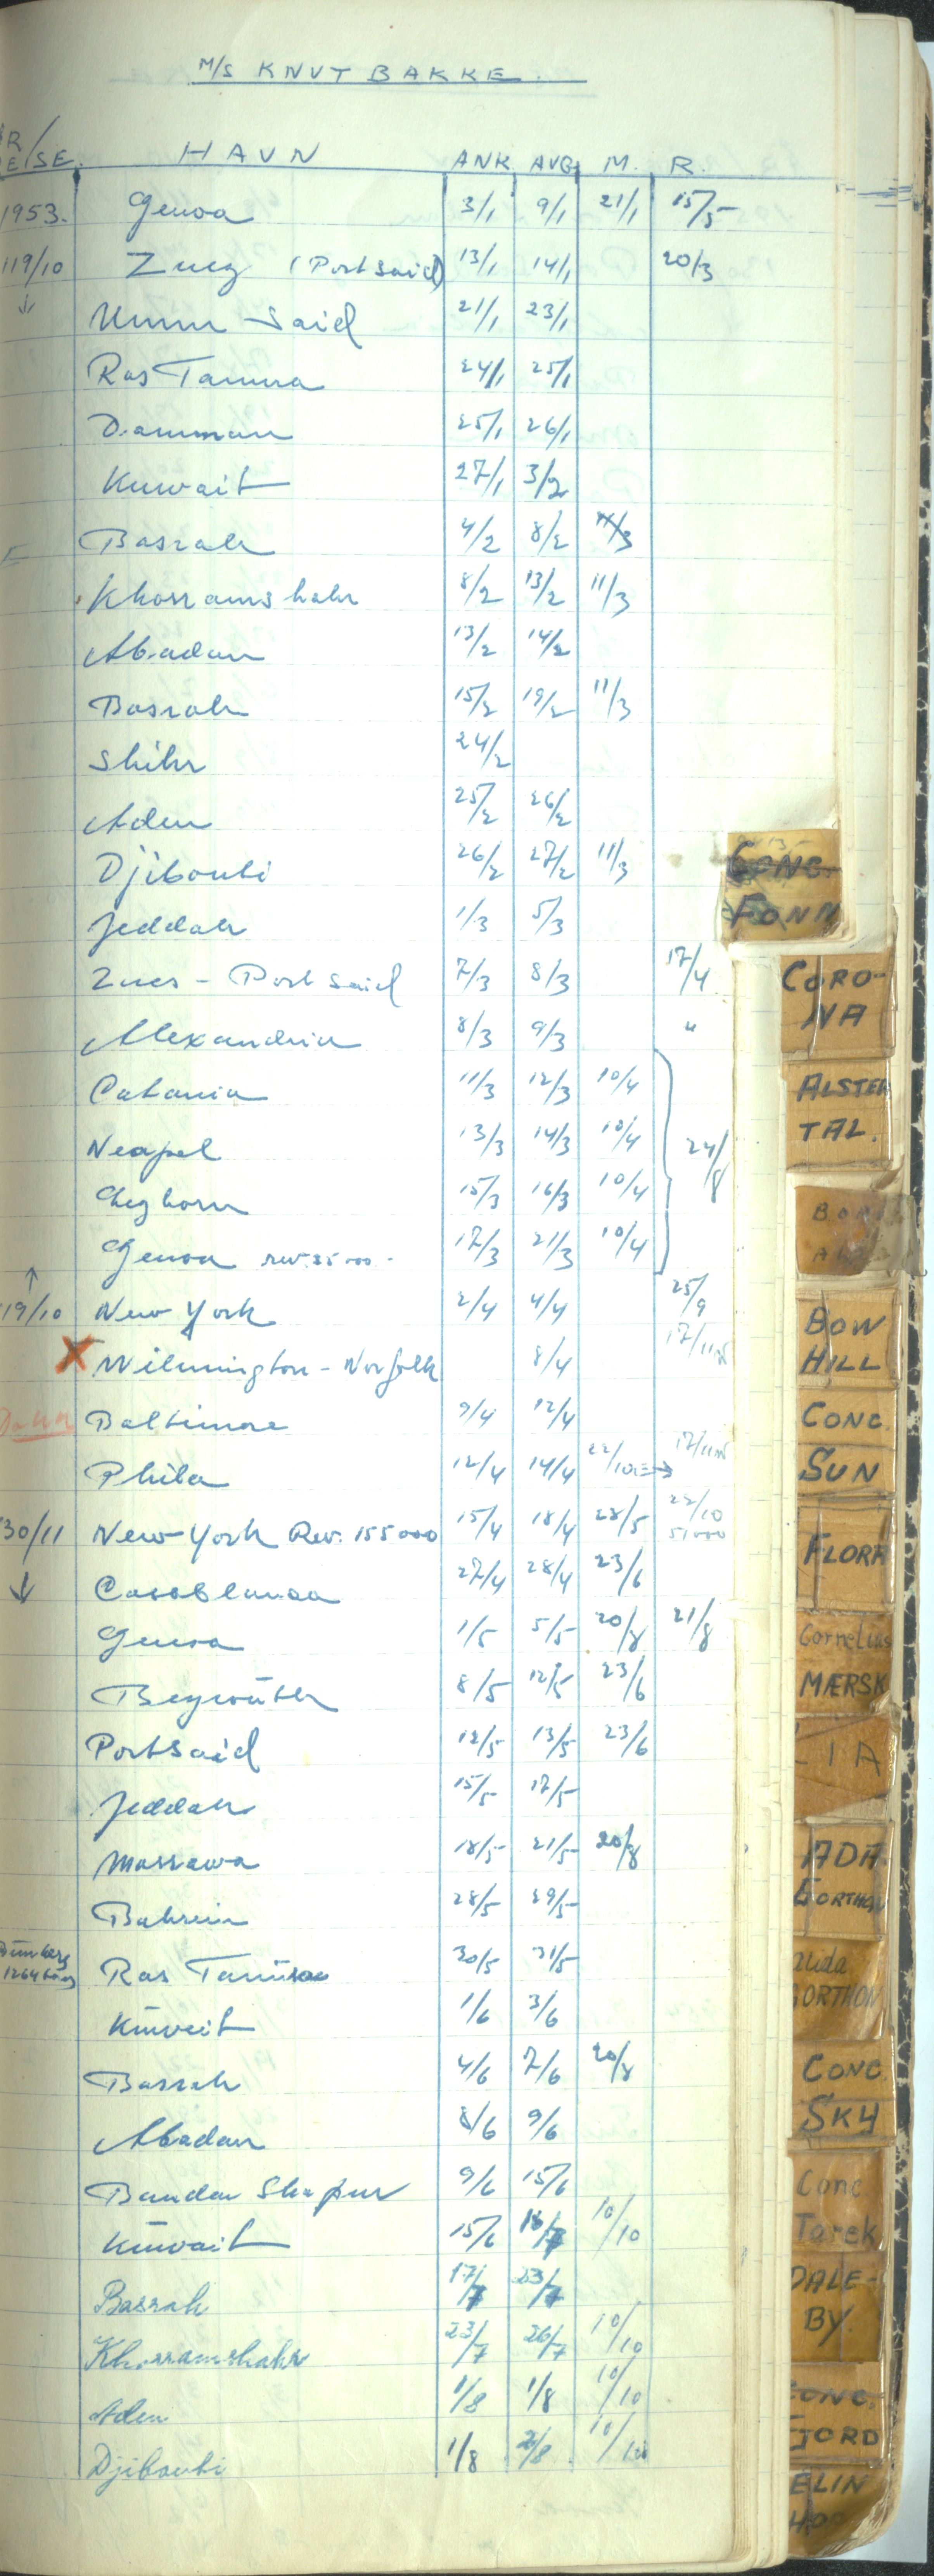 M/S KNUT BAKKE.
HAVN ANK. AVG. M. R.
1953. Genoa 3/1 9/1 21/1 15/5
119/10 Zuez (Port Said) 13/1 14/1 20/3
↓ Umm Said 21/1 23/1
Ras Tanura 24/1 25/1
Damman 25/1 26/1
Kuwait 27/1 3/2
Basrah 4/2 8/2 11/3
Khorramshahr 8/2 13/2 11/3
Abadan 13/2 14/2
Basrah 15/2 19/2 11/3
Shihr 24/2
Aden 25/2 26/2
Djibouti 26/2 27/2 11/3
Jeddah 1/3 5/3
Zues - Port Said 7/3 8/3 17/4
Alexandria 8/3 9/3 "
Catania 11/3 12/3 10/4
Neapel 13/3 14/3 10/4 24/8
Leghorn 15/3 16/3 10/4
Genoa 17/3 21/3 10/4
↑
119/10 New York 2/4 4/4 25/9
X Wilmington - Norfolk 8/4
Baltimore 9/4 12/4
Phila 12/4 14/4
130/11 New York Rev. 155000 15/4 18/4 28/5 22/10
↓ Casablanca 27/4 28/4 23/6
Genoa 1/5 5/5 20/8 21/8
Beyrouth 8/5 12/5 23/6
Port Said 12/5 13/5 23/6
Jeddah 15/5 17/5
Massawa 18/5 21/5 20/8
Bahrein 28/5 29/5
Ras Tanura 30/5 31/5
Kuweit 1/6 3/6
Basrah 4/6 7/6 20/8
Abadan 8/6 9/6
Bandar Shapur 9/6 15/6
Kuwait 15/6 16/7 10/10
Basrah 17/7 23/7
Khorramshahr 23/7 26/7 10/10
Aden 1/8 1/8 10/10
Djibouti 1/8 2/8 10/10
CONC.
FONN
CORO-
NA
ALSTER
TAL.
BOW
HILL
CONC.
SUN
FLORA
Cornelius
MÆRSK
ADA
GORTHON
GORTHON
CONC
SKY
Conc
Tarek
DALE-
BY.
CONC.
FJORD
ELIN